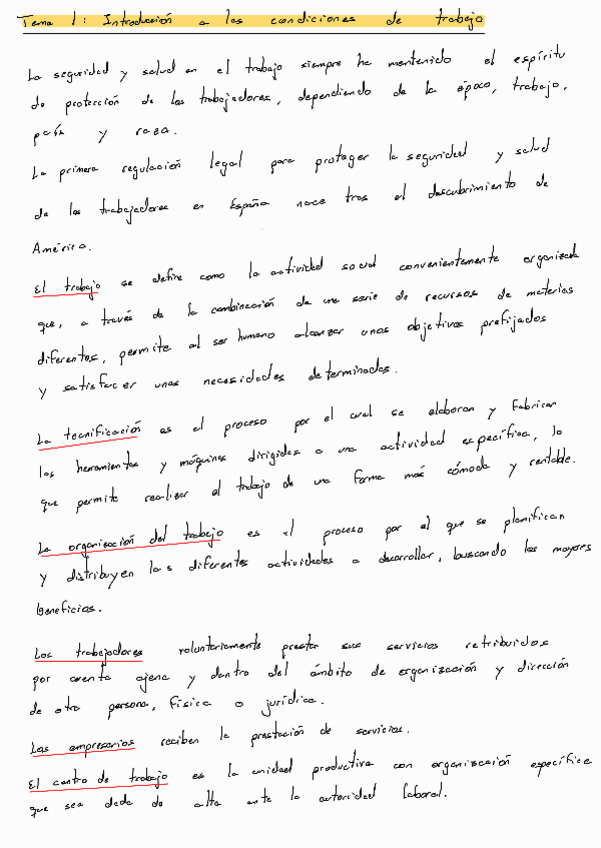 Tema 1: Introducción a las condiciones de trabajo
La seguridad y salud en el trabajo siempre ha mantenido el espíritu
de protección de los trabajadores, dependiendo de la época, trabajo,
país y raza.
La primera regulación legal para proteger la seguridad y salud
de los trabajadores en España nace tras el descubrimiento de
América.
El trabajo se define como la actividad social convenientemente organizada
que, a través de la combinación de una serie de recursos de materias
diferentes, permite al ser humano alcanzar unos objetivos prefijados
y satisfacer unas necesidades determinadas.
La tecnificación es el proceso por el cual se elaboran y fabrican
las herramientas y máquinas dirigidas a una actividad específica, lo
que permite realizar el trabajo de una forma más cómoda y rentable.
La organización del trabajo es el proceso por el que se planifican
y distribuyen las diferentes actividades a desarrollar, buscando los mayores
beneficios.
Los trabajadores voluntariamente prestan sus servicios retribuidos
por cuenta ajena y dentro del ámbito de organización y dirección
de otra persona, física o jurídica.
Los empresarios reciben la prestación de servicios.
El centro de trabajo es la unidad productiva con organización específica
que sea dada de alta ante la autoridad laboral.